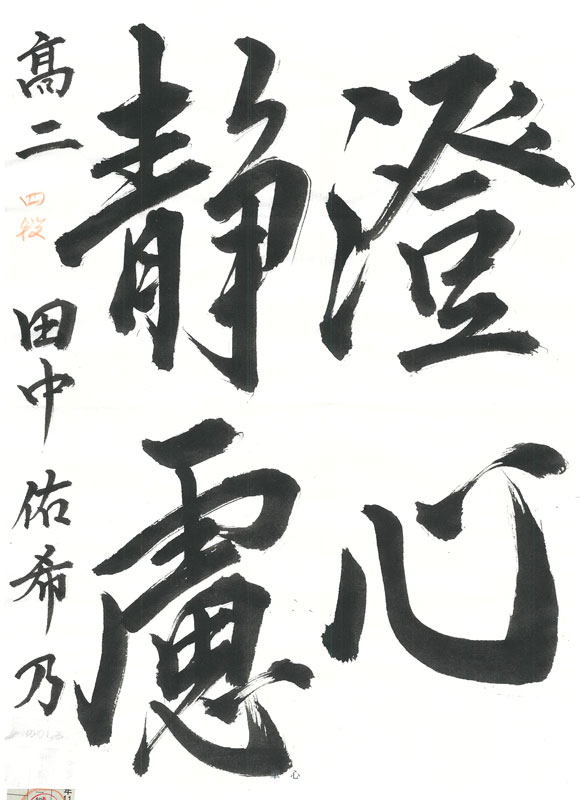 澄心
静慮
高二 四段 田中佑希乃
心